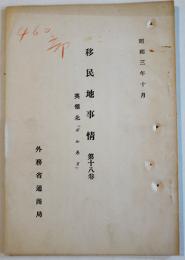 昭和三年十月
移民地事情 第十八巻
英領北「ボルネオ」
外務省通商局
460
部